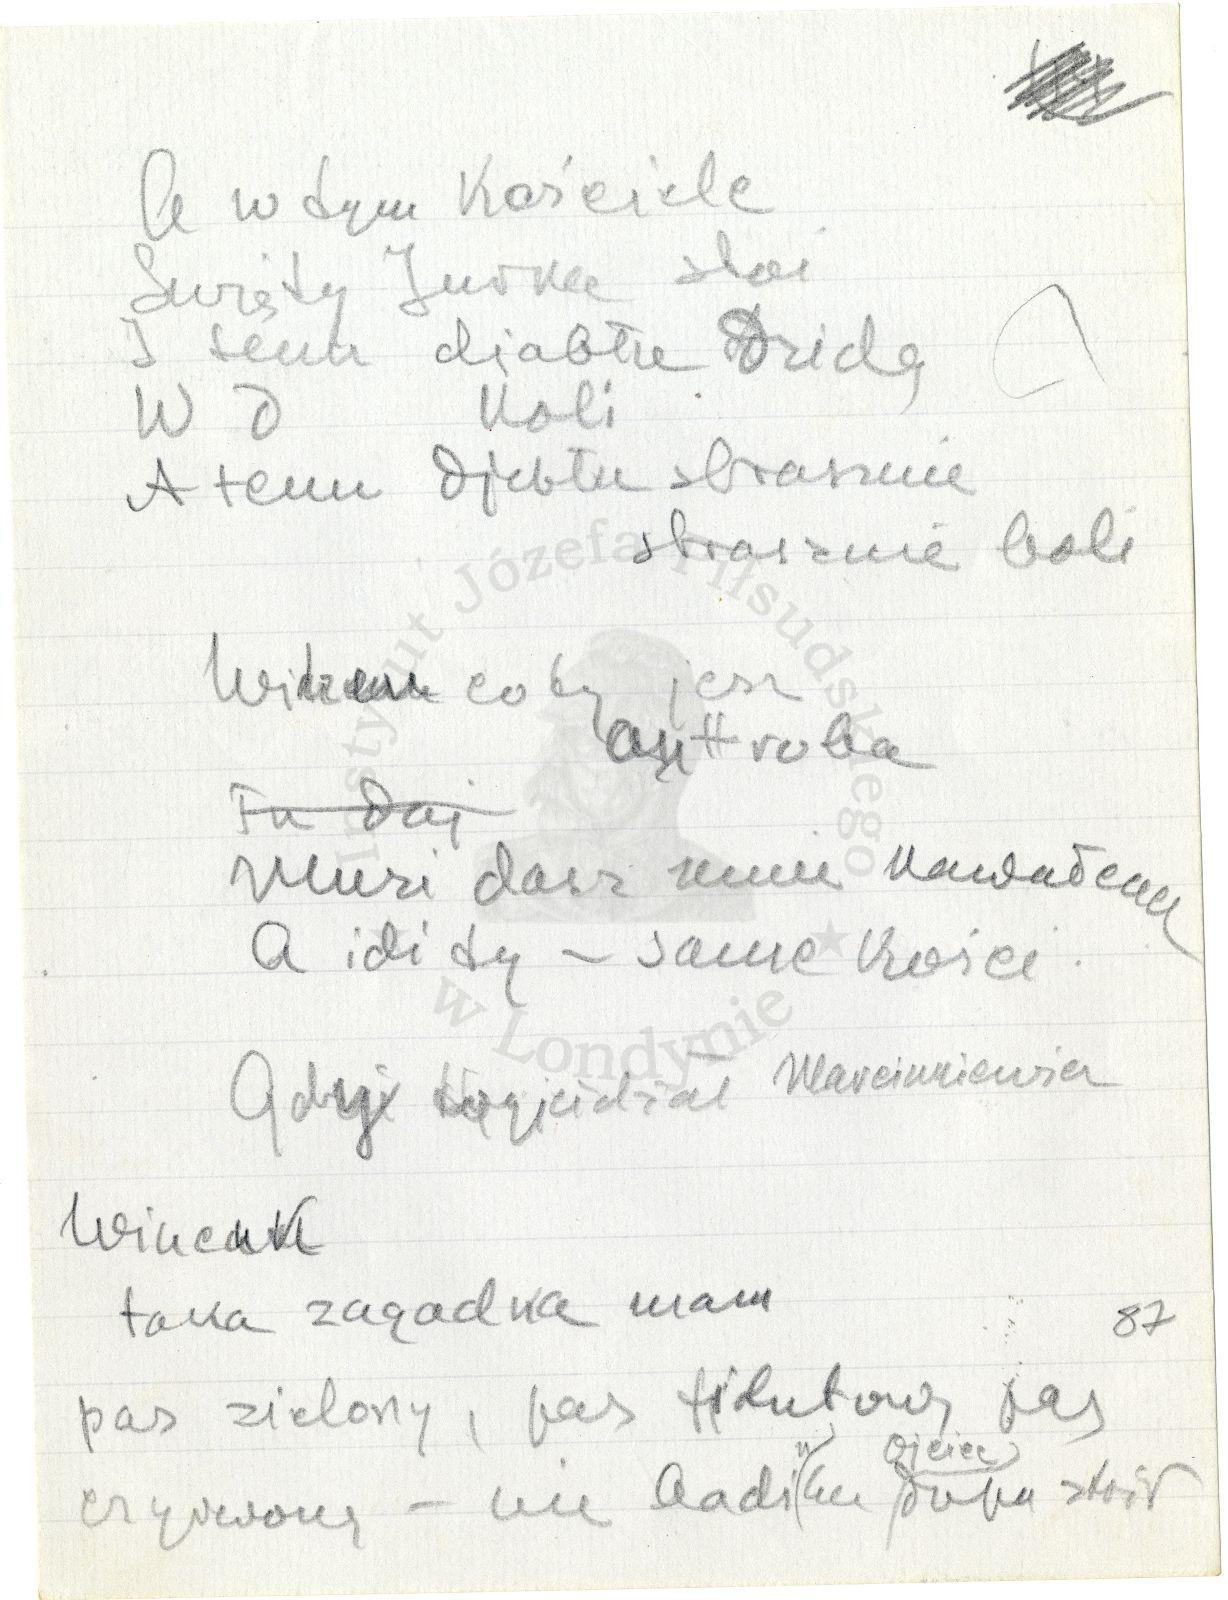 A w tym Kościele
Święty Jurka stoi
I temu djabłu Dzidą
W D Koli
A temu Djabłu strasznie
strasznie boli
Widzem co ty jesz
Tu daj
Musi dasz mnie kawałeczek
A idi ty – same kości.
Gdzji Marcinkiewicz
Wincenti
taka zagadka mam
pas zielony, pas pas
czyrwony – nie ojciec dupu
87
Instytut Józefa Piłsudskiego
w Londynie